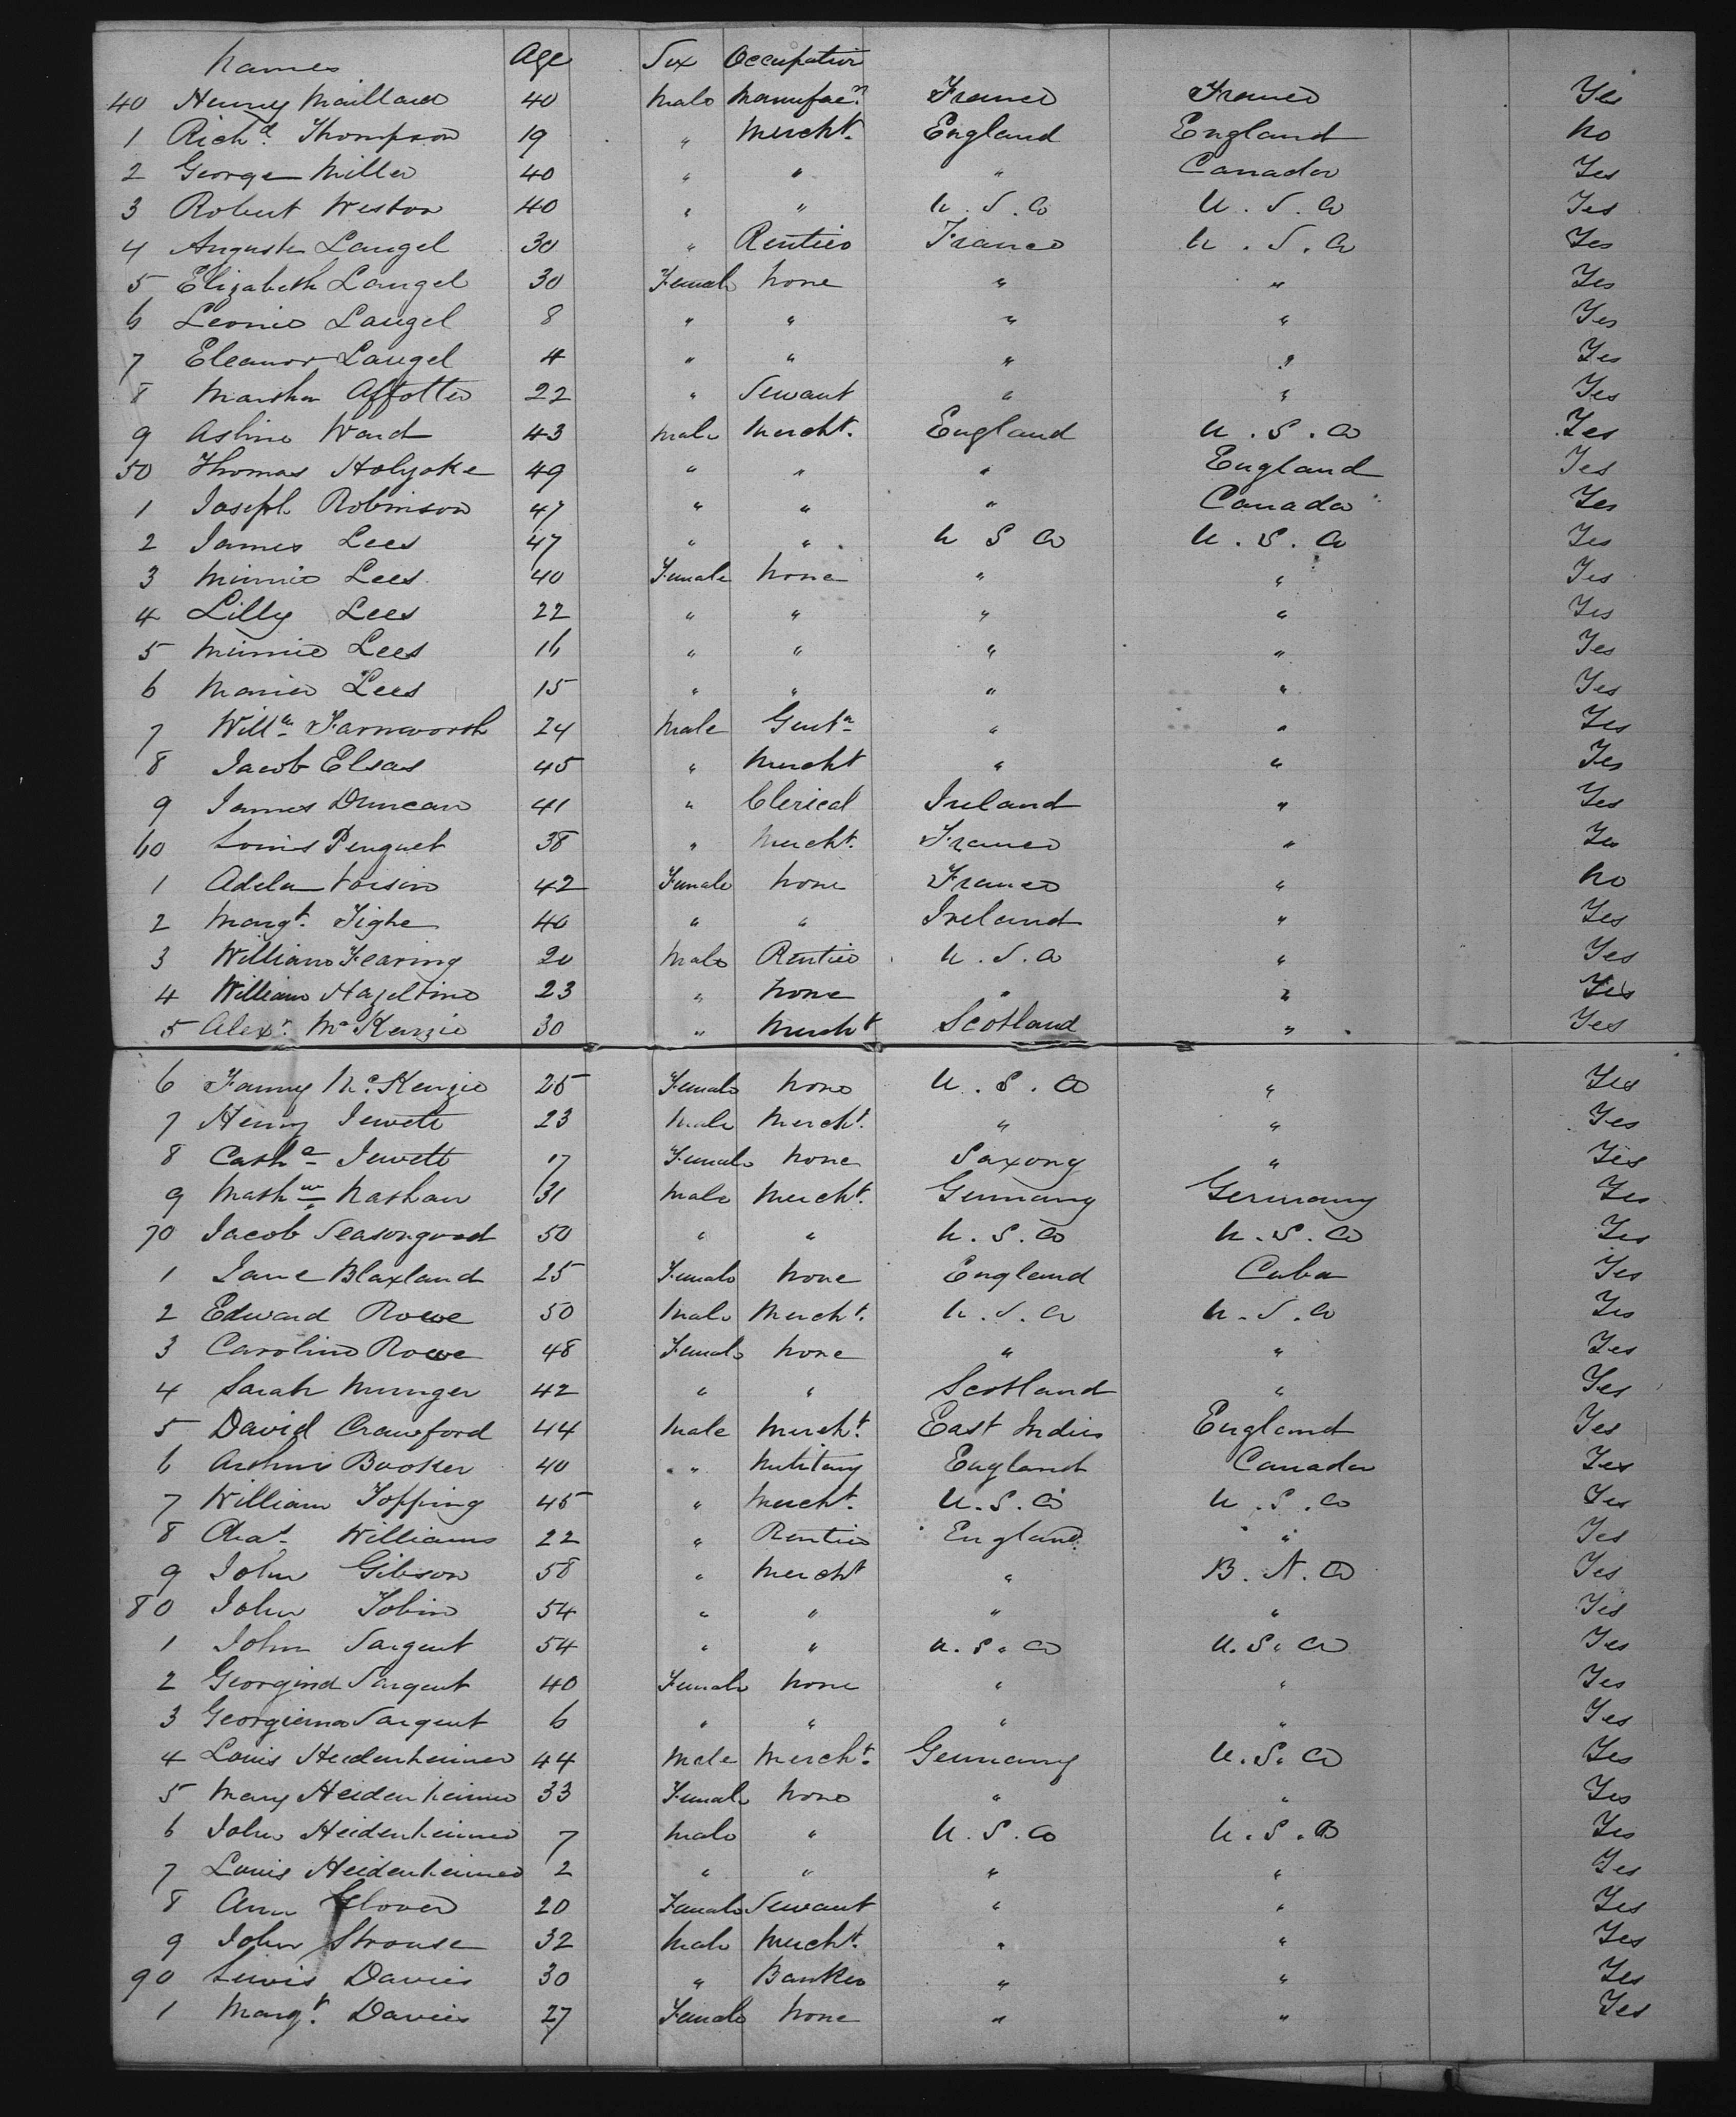 Names Age Sex Occupation
40 Henry Maillard 40 Male Manufacr France France Yes
1 Richd. Thompson 19 " Mercht. England England No
2 George Miller 40 " " " Canada Yes
3 Robert Weston 40 " " U.S.A U.S.A Yes
4 Auguste Laugel 30 " Rentier France U.S.A Yes
5 Elizabeth Laugel 30 Female None " " Yes
6 Leonie Laugel 8 " " " " Yes
7 Eleanor Laugel 4 " " " " Yes
8 Martha Affolter 22 " Servant " " Yes
9 Ward 43 Male Mercht. England U.S.A Yes
50 Thomas Holyoke 49 " " " England Yes
1 Joseph Robinson 47 " " " Canada Yes
2 James Lees 47 " " U S A U.S.A Yes
3 Minnie Lees 40 Female None " " Yes
4 Lilly Lees 22 " " " " Yes
5 Minnie Lees 16 " " " " Yes
6 Marier Lees 15 " " " " Yes
7 Willm Farnworth 24 Male Gentn " " Yes
8 Jacob Elsas 45 " Mercht " " Yes
9 James Duncan 41 " Clerical Ireland " Yes
60 Louis Penguet 38 " Mercht. France " Yes
1 Adela Voisin 42 Female None France " No
2 Margt. Tighe 40 " " Ireland " Yes
3 William Fearing 20 Male Rentier U.S.A " Yes
4 William Hazeltine 23 " None " " Yes
5 Alexr. McKenzie 30 " Mercht Scotland " Yes
6 Fanny McKenzie 25 Female None U.S.A " Yes
7 Henry Jewett 23 Male Mercht. " " Yes
8 Cathe Jewett 17 Female None Saxony " Yes
9 Mathw Nathan 31 Male Mercht. Germany Germany Yes
70 Jacob Seasongood 50 " " U.S.A U.S.A Yes
1 Jane Blaxland 25 Female None England Cuba Yes
2 Edward Rowe 50 Male Mercht. U.S.A U.S.A Yes
3 Caroline Rowe 48 Female None " " Yes
4 Sarah Munger 42 " " Scotland " Yes
5 David Crawford 44 Male Mercht. East Indies England Yes
6 Booker 40 " Military England Canada Yes
7 William Topping 45 " Mercht. U.S.A U.S.A Yes
8 Chas. Williams 22 " Rentier England " Yes
9 John Gibson 58 " Mercht " B.N.A Yes
80 John Tobin 54 " " " " Yes
1 John Sargent 54 " " U.S.A U.S.A Yes
2 Georgina Sargent 40 Female None " " Yes
3 Georgiena Sargent 6 " " " " Yes
4 Louis Heidenheimer 44 Male Mercht. Germany U.S.A Yes
5 Mary Heidenheimer 33 Female None " " Yes
6 John Heidenheimer 7 Male " U.S.A U.S.A Yes
7 Louis Heidenheimer 2 " " " " Yes
8 Ann Glover 20 Female Servant " " Yes
9 John Strouse 32 Male Mercht. " " Yes
90 Lewis Davies 30 " Banker " " Yes
1 Margt. Davies 27 Female None " " Yes